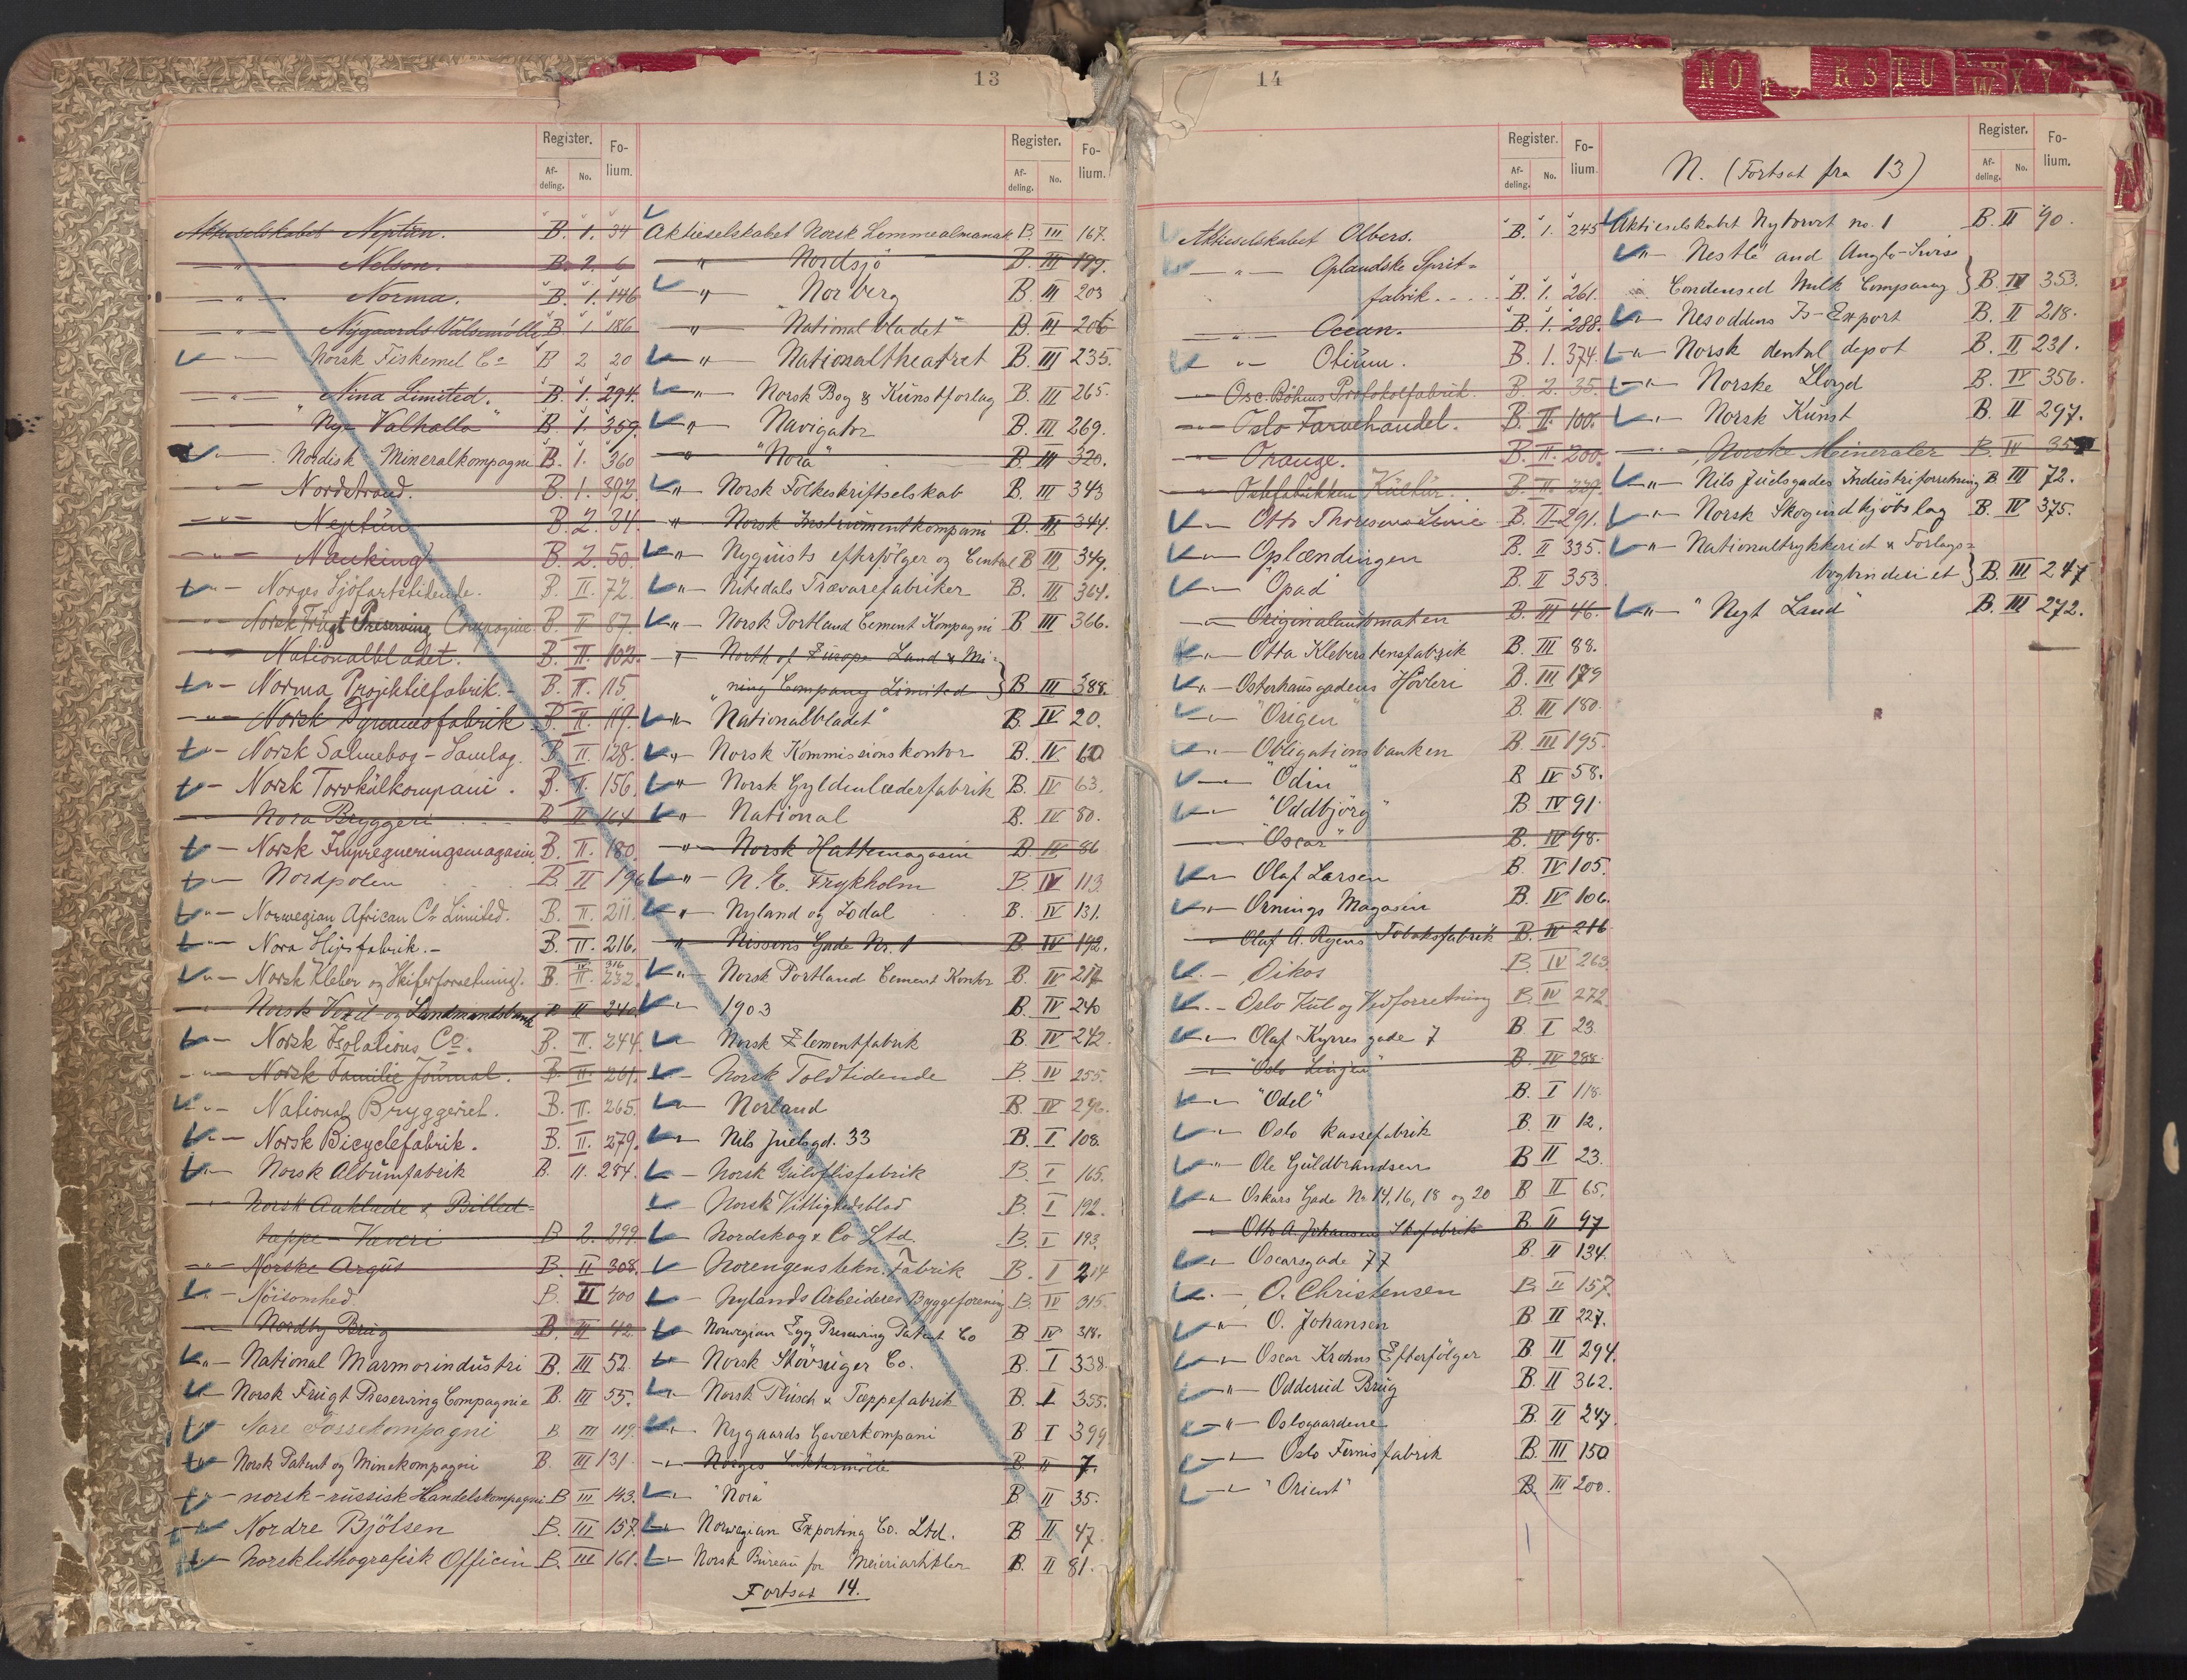 13
Register. Fo-
Af- No. lium.
deling.
Aktieselskabet Neptun. B. 1. 34
— " — Nelson. B. 2. 6
— " — Norma. B. 1. 146
— " — Nygaards Valsemölle B. 1. 186
— " — Norsk Fiskemel Co B 2 20
— " — Nina Limited. B. 1. 294.
"Ny-Valhalla" B. 1. 359.
— Nordisk Mineralkompagni B. 1. 360
— " — Nordstrand. B. 1. 392.
— " — Neptun B. 2. 31.
— " — Nanking B. 2. 50.
— " — Norges Sjöfartstidende. B. II. 72.
— " — Norsk Frugt Preserving Compagnie. B. II 87.
— " — Nationalbladet. B. II. 102.
— " — Norma Projektilfabrik. - B. II. 115
— " — Norsk fabrik B. II. 119.
— " — Norsk Salmebog - Samlag. B. II. 128.
— " — Norsk Torvkulkompani. B. II. 156.
— Nora Bryggeri B II 164
— " — Norsk Impregneringsmagasin B. II. 180.
— " — Nordpolen B. II 196
— " — Norwegian African Co Limited. B. II. 211.
— " — Nora Gipsfabrik. - B. II. 216.
IV 316
— " — Norsk Kleber og Skiferforretning. B. II. 232.
— " — Norsk og Landmandsbank B II 240
— " — Norsk Isolations Co. B. II. 244.
— " — Norsk Familie Journal. B. II. 261.
— " — National Bryggeriet. B. II. 265.
— " — Norsk Bicyclefabrik. B. II. 279.
— " — Norsk Albumfabrik B. II. 284.
— " — Norsk Aaklæde & Billed-
tæppe - Væveri B 2. 299
— " — Norske Argus B. II 308.
— " — Nöisomhed B. II 400
— " — Nordby Brug B. III 42.
— " — National Marmorindustri B. III 52.
— " — Norsk Frugt Preserving Compagnie B. III 55.
— " — Nare Fossekompagni B III 119.
— " — Norsk Patent og Minekompagni B. III 131.
— " — norsk-russisk Handelskompagni B III 143.
— " — Nordre Bjölsen B. III 157.
— " — Norsk lithografisk Officin B. III 161.
Register. Fo-
Af- No. lium.
deling.
Aktieselskabet Norsk Lommealmanak B. III 167.
— " — Nordsjö B. III 199.
— " — Norberg B. III 203
— " — "Nationalbladet" B. III 206
— " — Nationaltheatret B. III 235.
— " — Norsk Bog & Kunstforlag B. III 265.
— " — Navigator B. III 269.
— " — "Nora" B. III 320.
— " — Norsk Folkeskriftselskab B. III 343
— " — Norsk Instrumentkompani B. III 344.
— " — Nyquists efterfölger og Central B III 349.
— " — Nitedals Trævarefabriker B. III 364.
— " — Norsk Portland Cement Kompagni B III 366.
— " — North of Europe Land & Mi-
ning Company Limited } B III 388.
— " — "Nationalbladet" B. IV 20.
— " — Norsk Kommissionskontor B. IV 60
— " — Norsk Gyldenlæderfabrik B. IV 63.
— " — National B. IV 80.
— " — Norsk Hattemagasin B. IV 86
— " — N. E. Frykholm B. IV 113
— " — Nyland og Lodal B. IV 131.
— " — Nissens Gade Nr. 1 B. IV 192.
— " — Norsk Portland Cement Kontor B. IV 217
— " — 1903 B. IV 240
— " — Norsk Elementfabrik B. IV 242.
— Norsk Toldtidende B. IV 255.
— " — Norland B. IV 296.
— " — Nils Juelsgd. 33 B. I 108
— Norsk Gulvflisfabrik B. I 165.
— Norsk Vittighedsblad B. I 192.
— Nordskog & Co Ltd. B. I 193.
— Norengens tekn. Fabrik B. I 214
— Nylands Arbeideres Byggeforening B. IV 315.
— Norwegian Egg Preserving Patent Co B IV 318.
— Norsk Stövsuger Co. B. I 338
— " — Norsk Plüsch & Tæppefabrik B. I 355.
— " — Nygaards Geværkompani B I 399
— " — Norges B. II 7.
— " — "Nora" B II 35.
— " — Norwegian Exporting Co. Ltd. B II 47.
— " — Norsk Bureau for Meieriartikler B. II 81.
Fortsat 14.
14
NO P RSTU W X Y
Register. Fo-
Af- No. lium.
deling.
Aktieselskabet Olbers. B. 1. 245
— " — Oplandske Sprit-
fabrik. . . . . B. 1. 261.
— " — Ocean. B. 1. 288.
— " — Otium. B. 1. 374.
— " — Osc. Böhms Protokolfabrik. B. 2. 35.
— " — Oslo Farvehandel. B. II. 100.
— " — Orange. B. II. 200.
— " — "Kultur" B. II. 237.
— " — Otto Thoresens Linie B. II 291.
— " — Oplændingen B. II 335.
— " — "Opad" B. II 353
— " — Originalautomaten B. III 46.
— " — Otta Kleberstensfabrik B. III 88.
— " — Osterhausgadens Hövleri B. III 179
— " — "Origen" B. III 180.
— " — Obligationsbanken B. III 195.
— " — "Odin" B IV 58.
— " — "Oddbjörg" B. IV 91.
— " — "Oscar" B. IV 98.
— " — Olaf Larsen B. IV 105.
— " — Ornings Magasin B. IV 106.
— " — Olaf A. Ryens Tobaksfabrik B. IV 216
— Oikos B. IV 263
— " — Oslo Kul og Vedforretning B. IV 272
— " — Olaf Kyrres gade 7 B I 23.
— " — "Oslo Linjen" B. IV 288.
— " — "Odel" B. I 118.
— " — Oslo kassefabrik B II 12.
— " — Ole Guldbrandsen B II 23.
— " — Oskars Gade No 14, 16, 18 og 20 B II 65.
— " — Otto A. Johansens Skofabrik B II 97
— " — Oscarsgade 77 B. II 134.
— " — O. Christensen B. II 157.
— " — O. Johansen B II 227.
— " — Oscar Krohns Efterfölger B II 294.
— " — Odderud Brug B. II 362.
— " — Oslogaardene B. II 247.
— " — Oslo Fernisfabrik B. III 150
— " — "Orient" B. III 200.
N. (Fortsat fra 13)
Register. Fo-
Af- No. lium.
deling.
Aktieselskabet Nytorvet no. 1 B. II 90.
— " — Nestlé and Anglo-Swiss
Condensed Milk Company } B. IV 353.
— " — Nesoddens Is-Export B. II 218.
— " — Norsk dental depot B. II 231.
— " — Norske Lloyd B. IV 356.
— " — Norsk Kunst B. II 297.
— " — Norske Mineraler B. IV
— " — Nils Juelsgades Industriforretning B III 72.
— " — Norsk Skogindkjöbslag B. IV 375.
— " — Nationaltrykkeriet & Forlags-
bogbinderiet } B. III 247
— " — "Nyt Land" B. III 272.